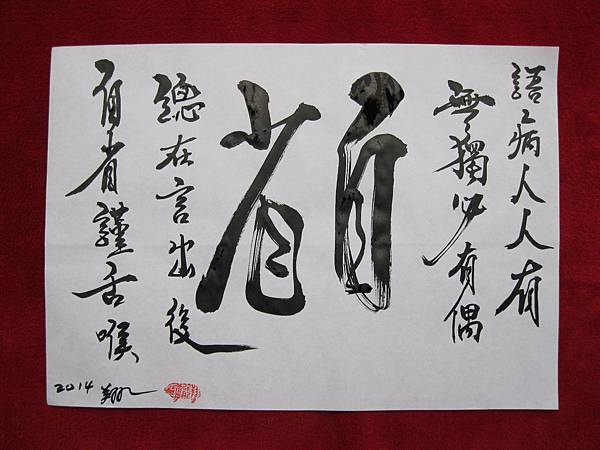 語病人人有
無獨必有偶
自省
總在言出後
自省謹舌喉
2014 翔